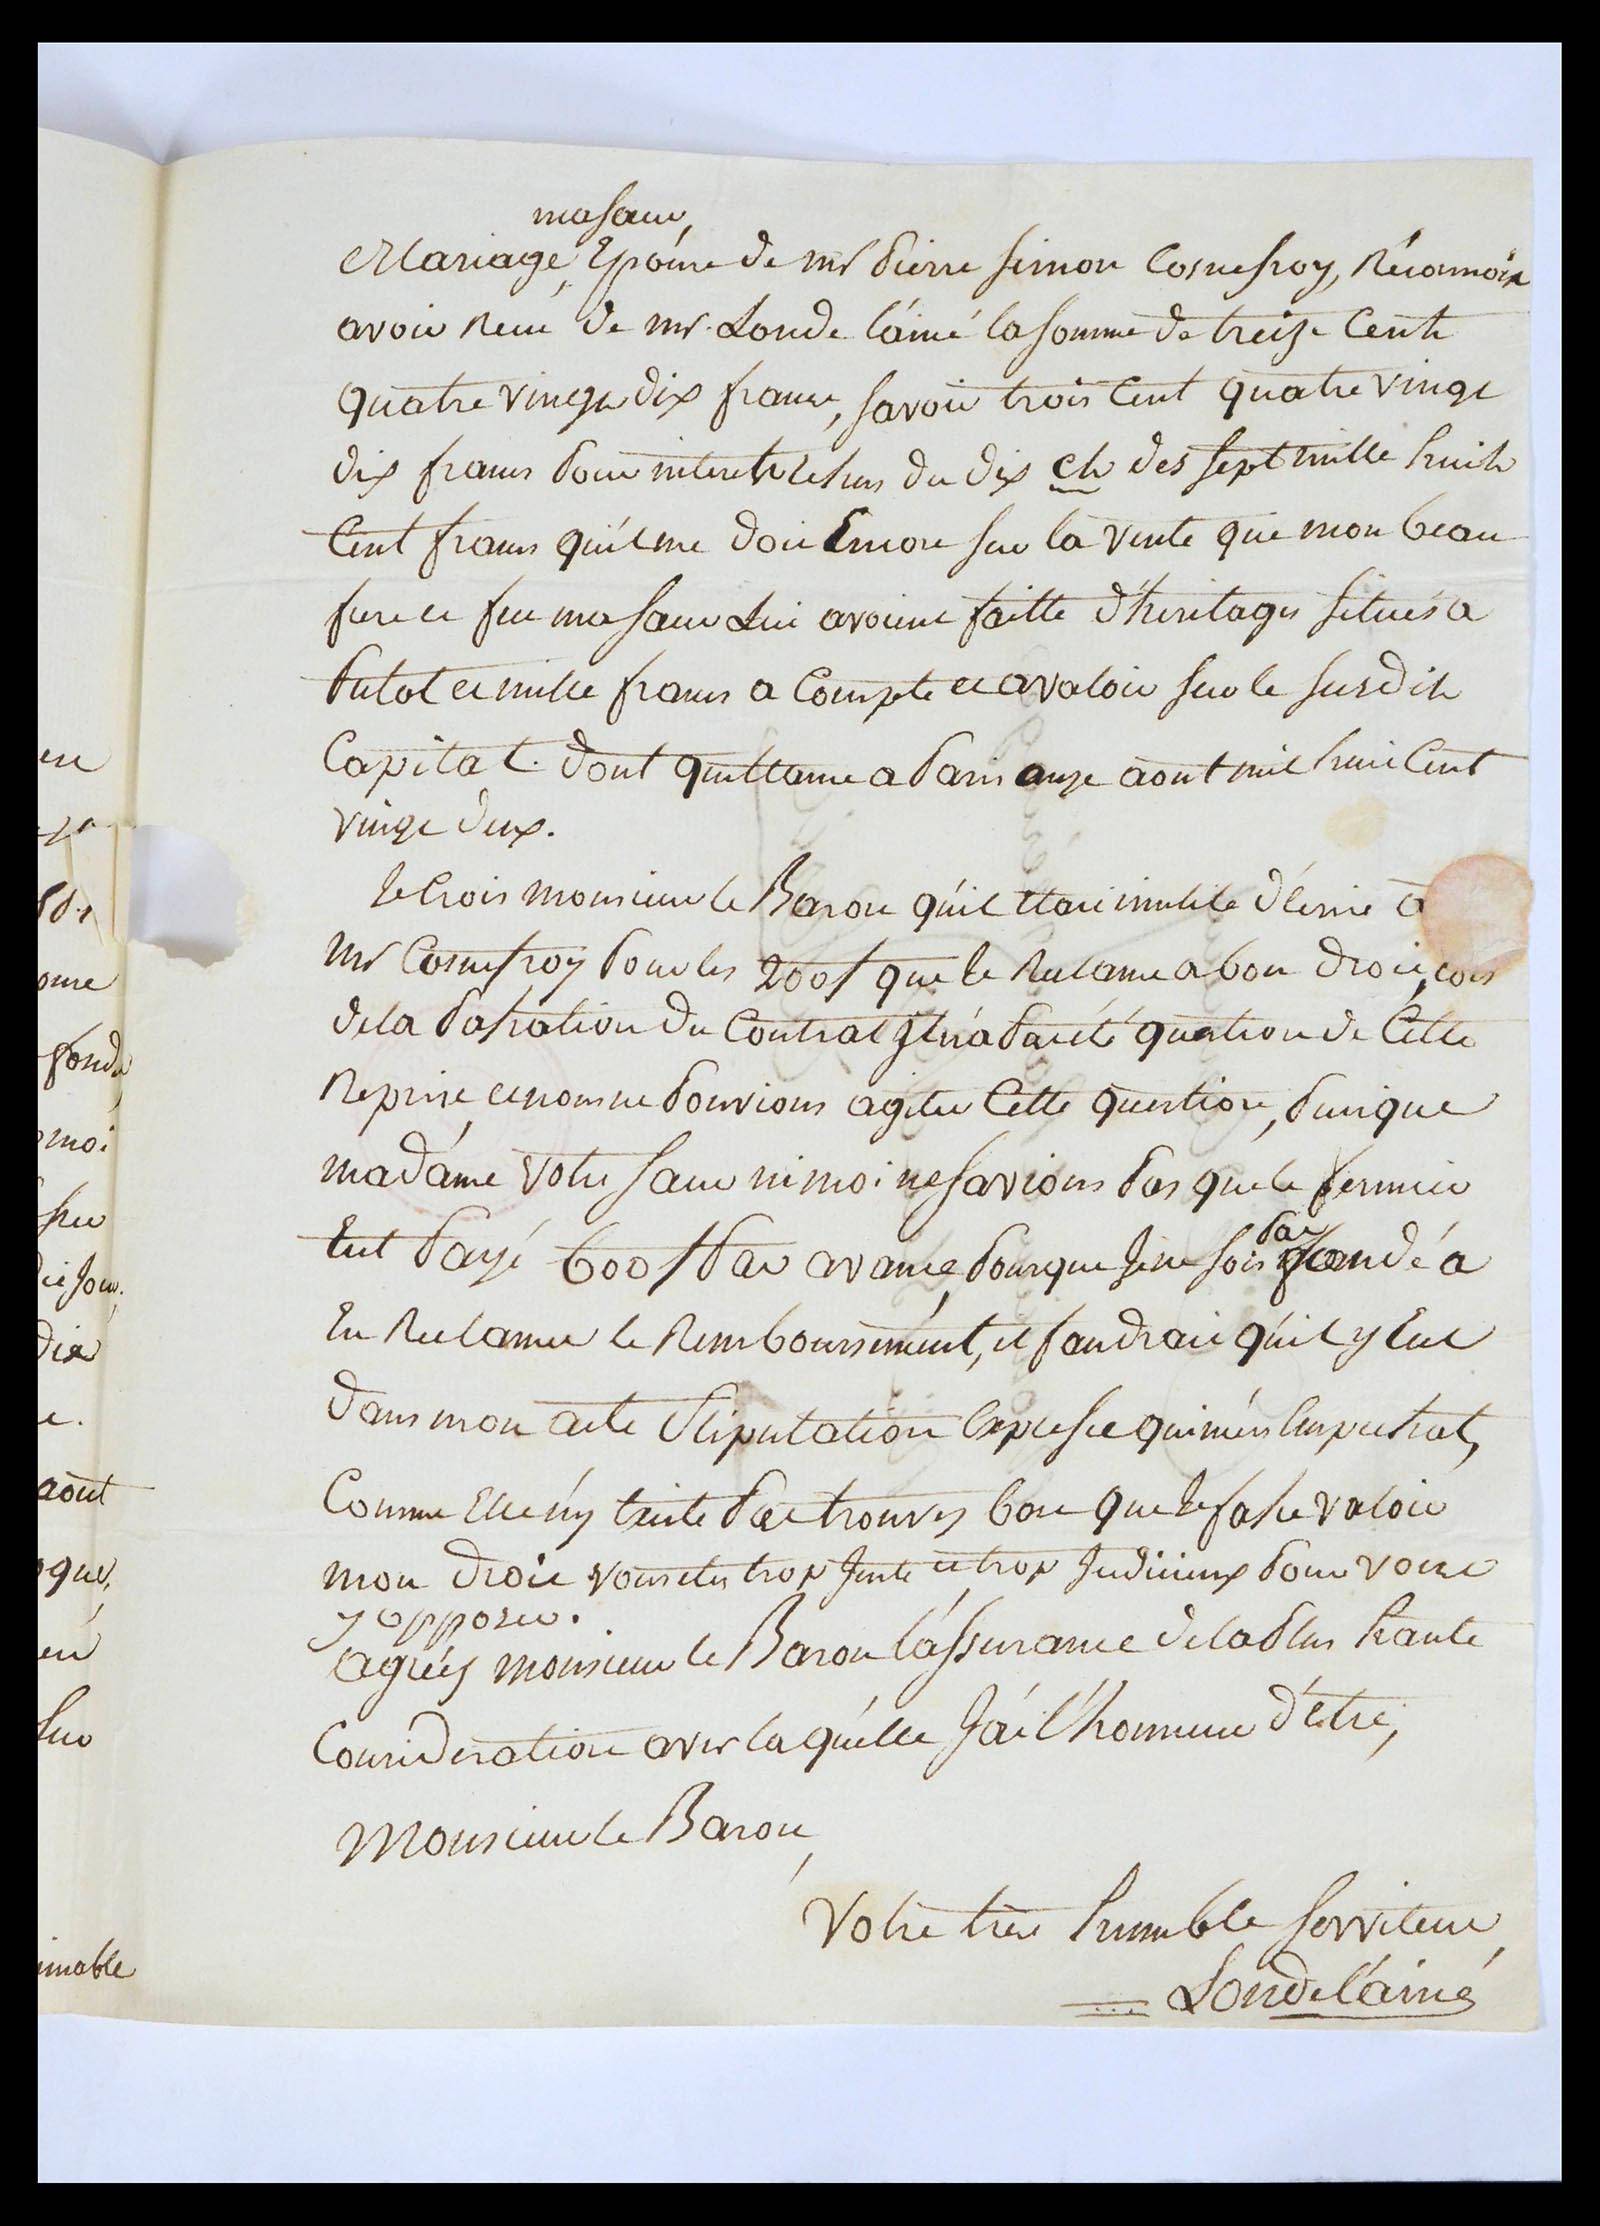 ma sœur,
Mariage, Epouse de mr Pierre Simon Cosnefroy, Réconnoix
avoir Recu de mr. Londe l'áiné la somme de treize Cents
quatre vingt dix francs, savoir trois Cent quatre vingt
dix francs pour interets échus du dix ct des sept mille huit
Cent francs qu'il me doit Encore sur la vente que mon beau
frere et feu ma sœur Lui avoient faitte d'heritages situés a
Putot et mille francs a Compte et a valoir sur le susdit
Capital. dont quittance a Paris onze aout mil huit Cent
vingt deux.
Je Crois monsieur le Baron qu'il étoit inutile d'écrire a
mr Cosnefroy pour les 200f que je Reclame a bon droit, lors
de la passation du Contrat Il n'a pas été question de Cette
Reprise, et nous ne pouvions agiter Cette question, puisque
madáme votre sœur ni moi ne savions pas que le fermier
Eut payé 600f par avance, pourque je ne sois pas fondé a
En Reclamer le Remboursement, il faudrait qu'il y Eut
dans mon acte stipulation Expresse qui m'en Empechat,
Comme Elle n'y Existe pas trouvez bon que je fasse valoir
mon droit vous etes trop Juste et trop Judicieux pour vous
y opposer.
agréez monsieur le Baron l'assurance de la plus haute
Consideration avec laquélle J'ai l'honneur d'être,
Monsieur le Baron,
Votre très humble serviteur
Londe l'áiné
en
ome
fonds
moi
dix
e.
aout
que,
en
sur
imable